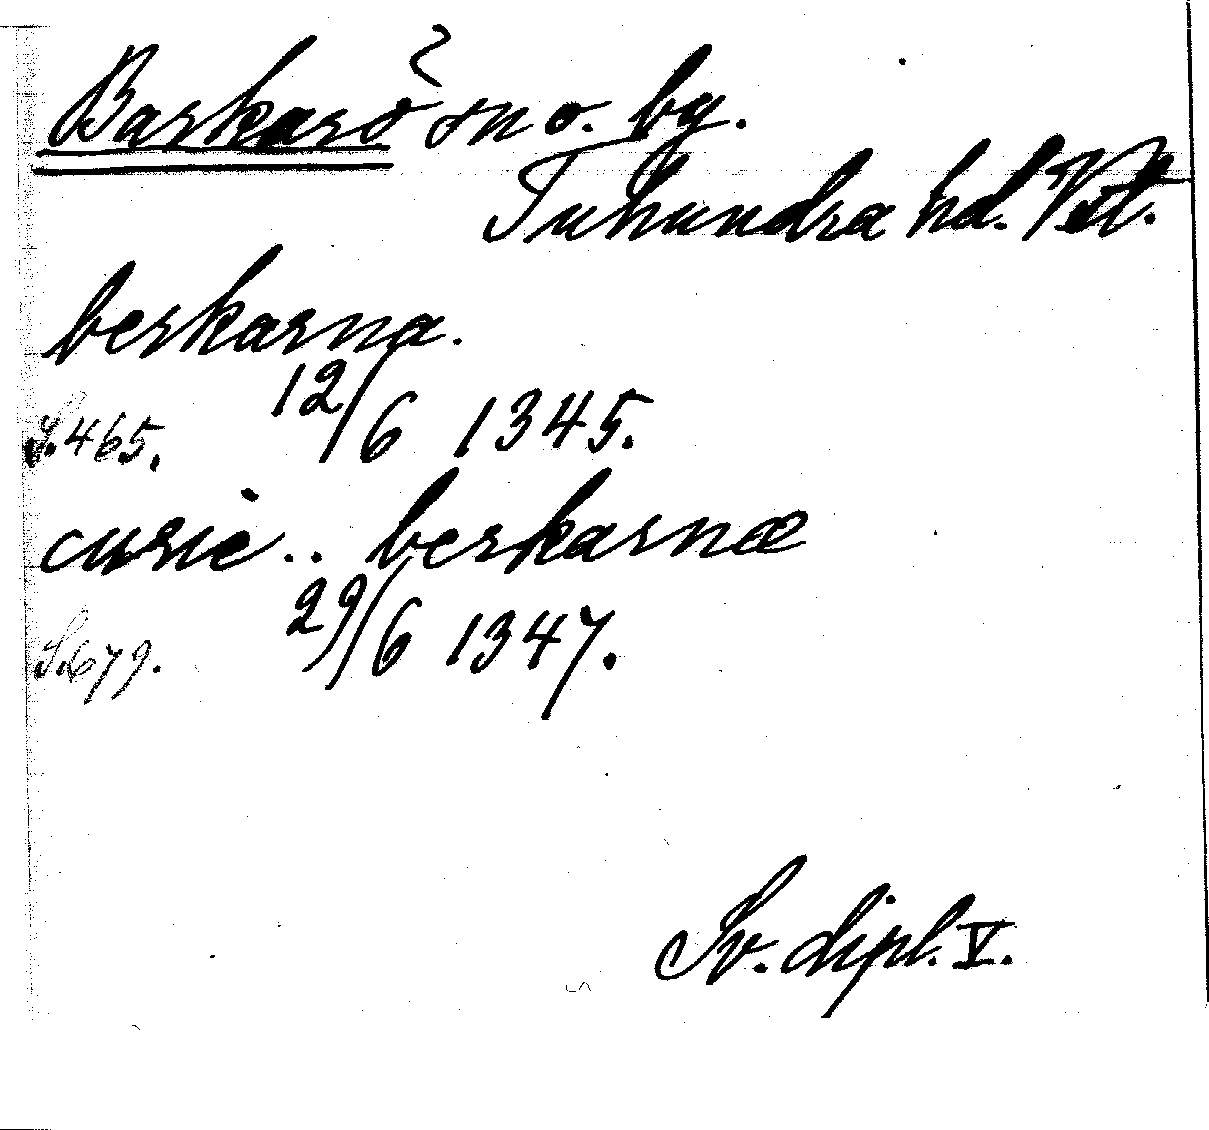 Barkarö sn o. by.
Tuhundra hd. Vstl.
berkarna.
12/6 1345.
S. 465.
curie .. berkarnæ
29/6 1347.
S. 679.
Sv. dipl. V.